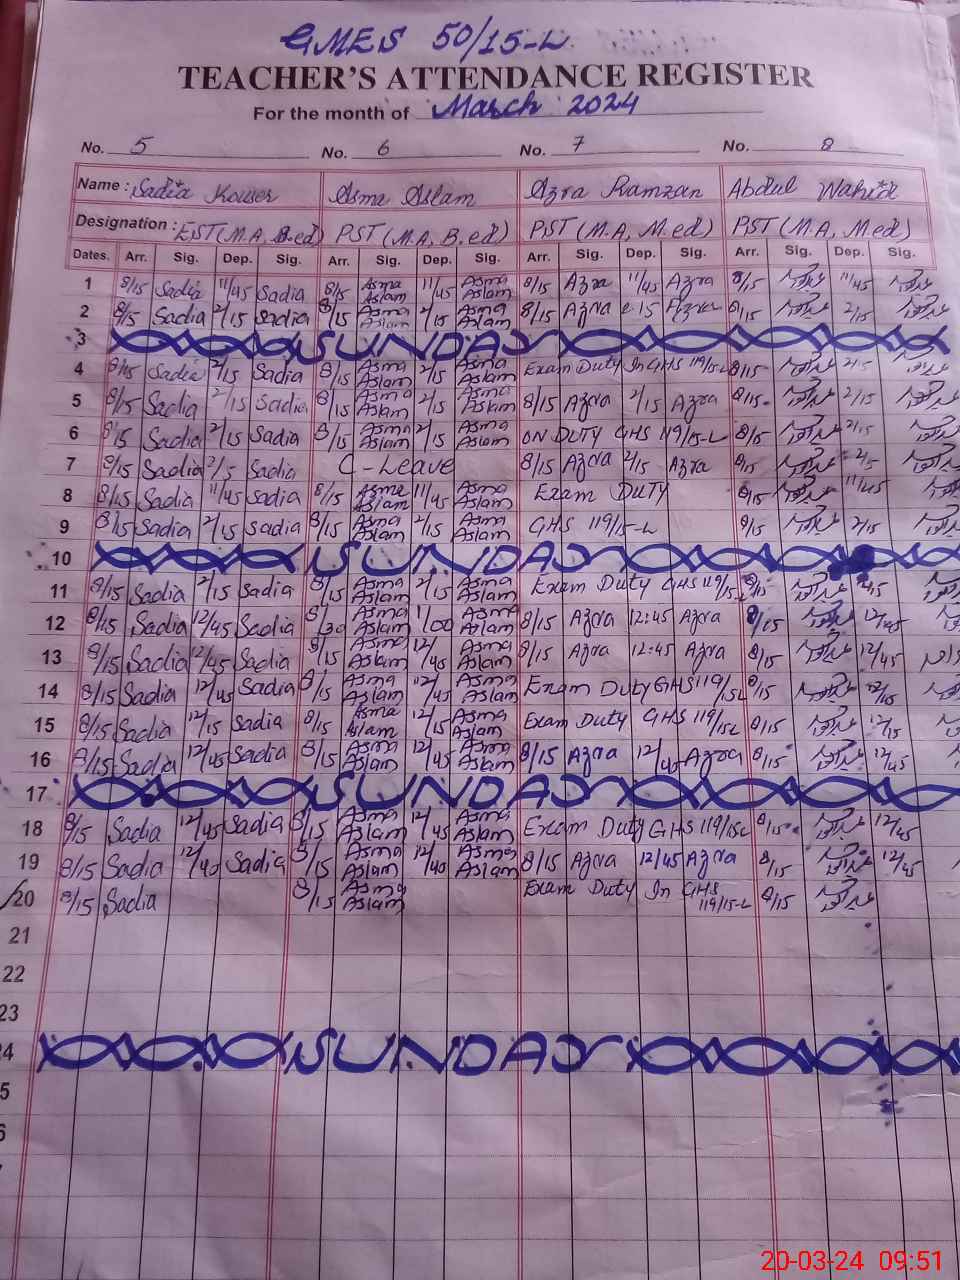 GMES 50/15-L
TEACHER'S ATTENDANCE REGISTER
For the month of March 2024
No. 5 No. 6 No. 7 No. 8
Name : Sadia Kouser Asma Aslam Azra Ramzan Abdul
Designation : EST (M.A, B.ed) PST (M.A, B.ed) PST (M.A, M.ed) PST (M.A, M.ed)
Dates. Arr. Sig. Dep. Sig. Arr. Sig. Dep. Sig. Arr. Sig. Dep. Sig. Arr. Sig. Dep. Sig.
1 8/15 Sadia 11/45 Sadia 8/15 Asma Aslam 11/45 Asma Aslam 8/15 Azra 11/45 Azra 8/15 11/45
2 8/15 Sadia 2/15 Sadia 8/15 Asma Aslam 2/15 Asma Aslam 8/15 Azra 2:15 Azra 8/15 2/15
3 SUNDAY
4 8/15 Sadia 2/15 Sadia 8/15 Asma Aslam 2/15 Asma Aslam Exam Duty In GHS 119/15-L 8/15 2/15
5 8/15 Sadia 2/15 Sadia 8/15 Asma Aslam 2/15 Asma Aslam 8/15 Azra 2/15 Azra 8/15 2/15
6 8/15 Sadia 2/15 Sadia 8/15 Asma Aslam 2/15 Asma Aslam ON DUTY GHS 119/15-L 8/15 2/15
7 8/15 Sadia 2/5 Sadia C-Leave 8/15 Azra 2/15 Azra 8/15 2/5
8 8/15 Sadia 11/45 Sadia 8/15 Asma Aslam 11/45 Asma Aslam Exam DUTY 8/15 11/45
9 8/15 Sadia 2/15 Sadia 8/15 Asma Aslam 2/15 Asma Aslam GHS 119/15-L 8/15 2/15
10 SUNDAY
11 8/15 Sadia 2/15 Sadia 8/15 Asma Aslam 2/15 Asma Aslam Exam Duty GHS 119/15-L 8/15
12 8/15 Sadia 12/45 Sadia 8/30 Asma Aslam 1/00 Asma Aslam 8/15 Azra 12:45 Azra 8/15 12/45
13 8/15 Sadia 12/45 Sadia 8/15 Asma Aslam 12/45 Asma Aslam 8/15 Azra 12:45 Azra 8/15 12/45
14 8/15 Sadia 12/45 Sadia 8/15 Asma Aslam 12/45 Asma Aslam Exam Duty GHS 119/15L 8/15
15 8/15 Sadia 12/15 Sadia 8/15 Asma Aslam 12/15 Asma Aslam Exam Duty GHS 119/15L 8/15 12/15
16 8/15 Sadia 12/45 Sadia 8/15 Asma Aslam 12/45 Asma Aslam 8/15 Azra 12/45 Azra 8/15 12/45
17 SUNDAY
18 8/15 Sadia 12/45 Sadia 8/15 Asma Aslam 12/45 Asma Aslam Exam Duty GHS 119/15L 8/15 12/45
19 8/15 Sadia 12/40 Sadia 8/15 Asma Aslam 12/40 Asma Aslam 8/15 Azra 12/45 Azra 8/15 12/45
20 8/15 Sadia 8/15 Asma Aslam Exam Duty In GHS 119/15-L 8/15
21
22
23
24 SUNDAY
5
6
20-03-24 09:51